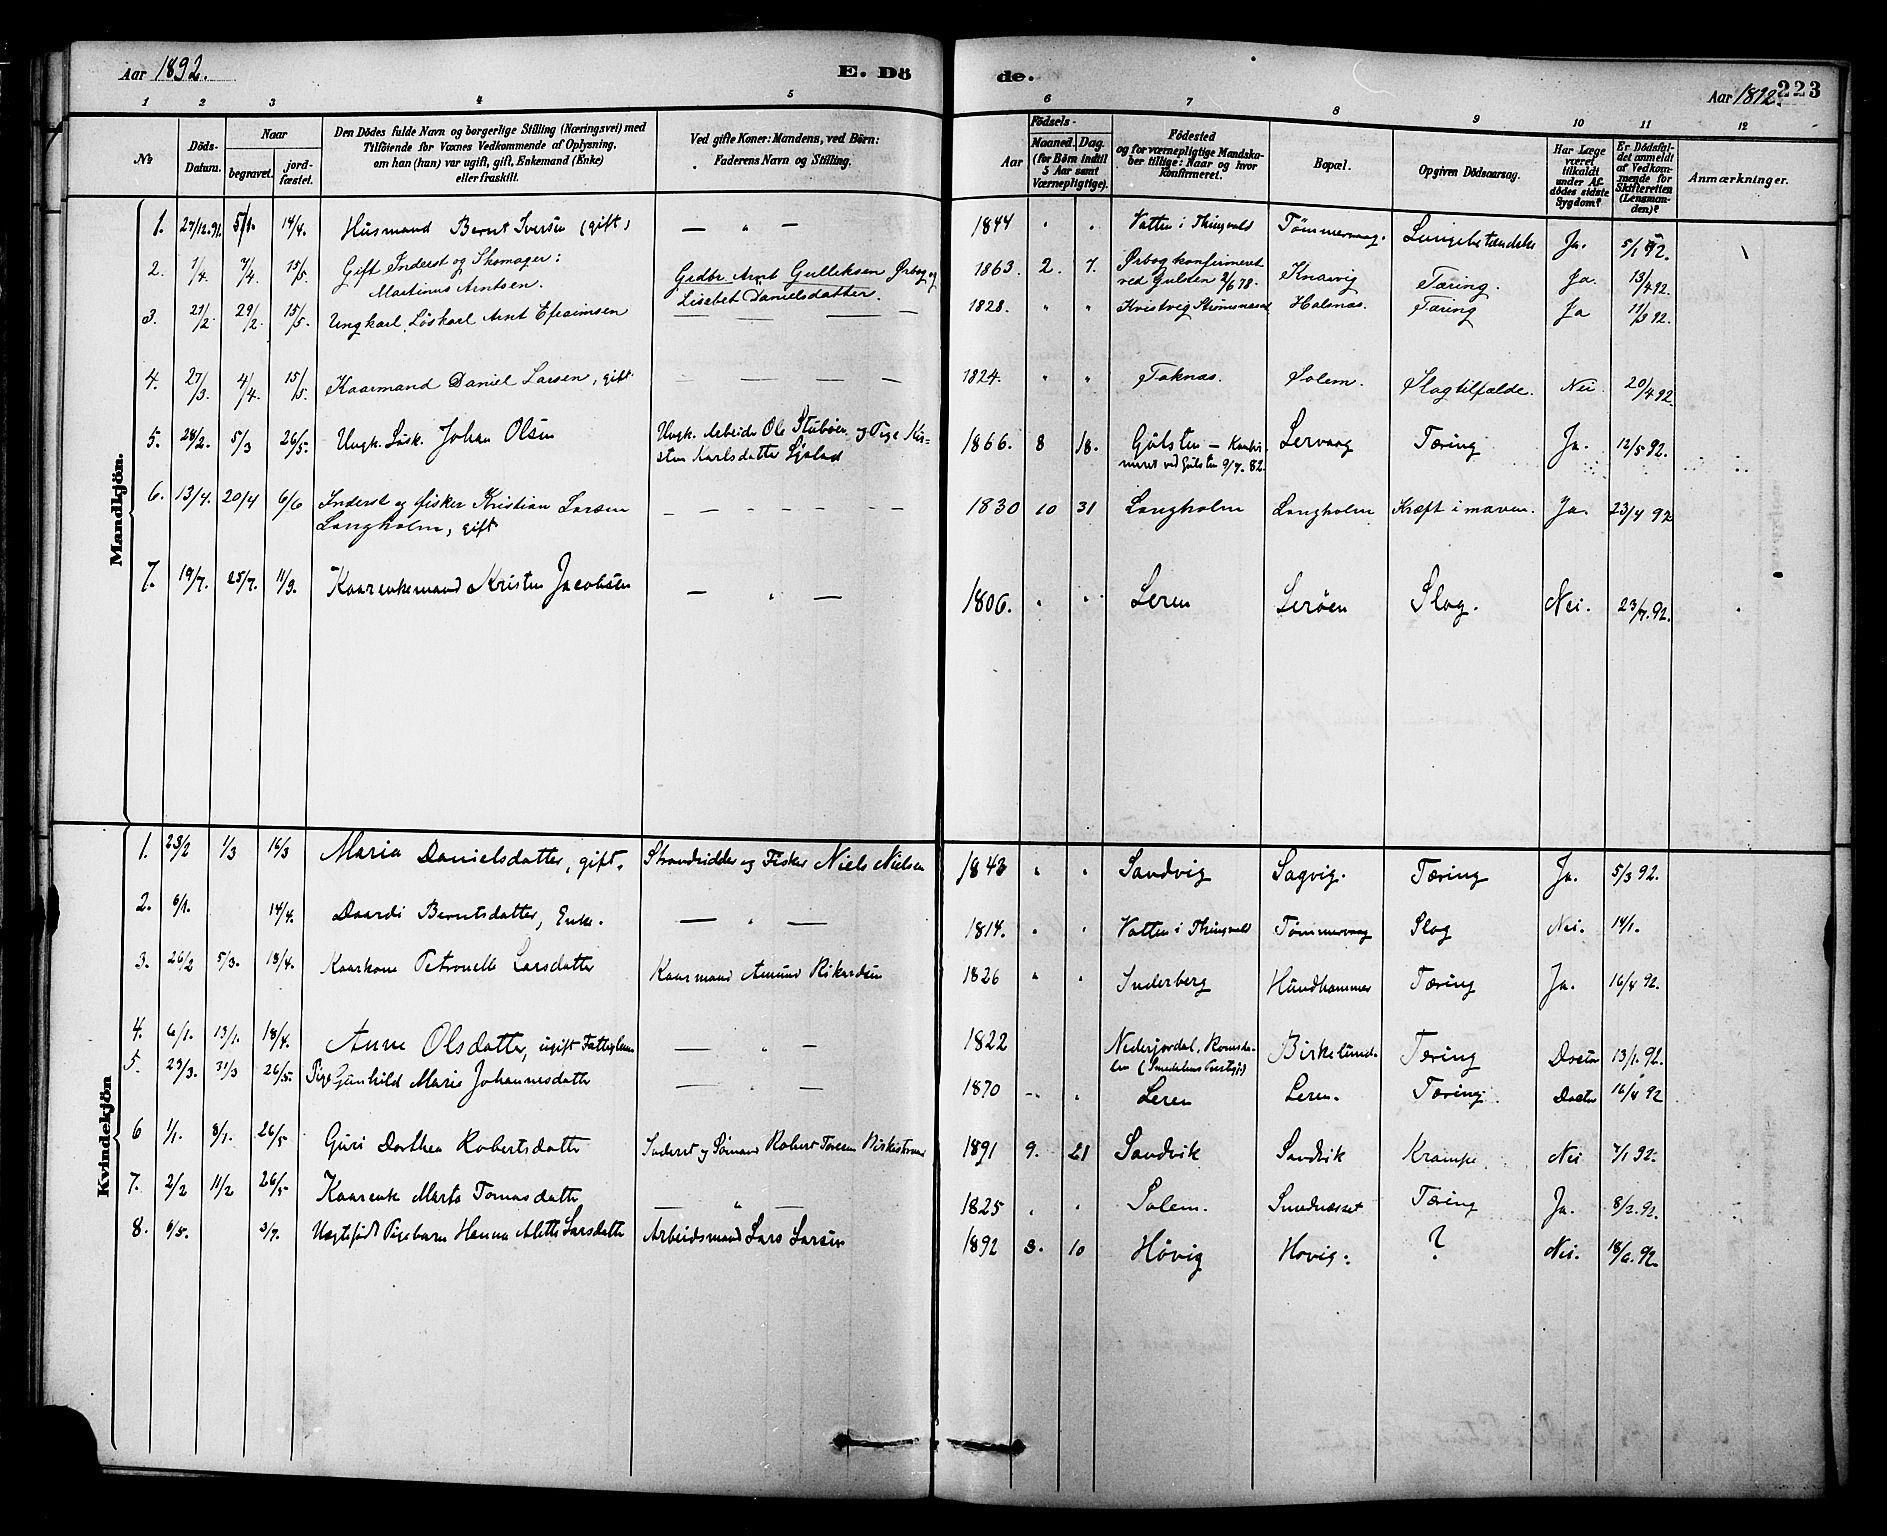 Aar 1892.
E. Dö
de.
Aar 1892.
223
1 2 3 4 5 6 7 8 9 10 11 12
No
Döds-Datum.
Naar
begravet.
jord-fæstet.
Den Dödes fulde Navn og borgerlige Stilling (Næringsvei) med
Tilföiende for Voxnes Vedkommende af Oplysning,
om han (hun) var ugift, gift, Enkemand (Enke)
eller fraskilt.
Ved gifte Koner: Mandens, ved Börn:
Faderens Navn og Stilling.
Födsels-
Aar
Maaned.
Dag.
(for Börn indtil
5 Aar samt
Værnepligtige).
Födested
og for værnepligtige Mandska-
ber tillige: Naar og hvor
konfirmeret.
Bopæl.
Opgiven Dödsaarsag.
Har Læge
været
tilkaldt
under Af-
dödes sidste
Sygdom?
Er Dödsfal-
det anmeldt
af Vedkom-
mende for
Skifteretten
(Lensman-
den)?
Anmærkninger.
Mandkjön.
1. 27/12.91. 5/1. 14/4. Husmand Bernt Iversen (gift) — " — 1844 " " Vatten i Thingvold Tømmervaag. Lungebetændelse Ja. 5/1 92.
2. 1/4. 7/4. 15/5. Gift Inderst og Skomager: Gedbr. Arnt Gulliksen Ørbog og 1863. 2. 7. Ørbog konfirmeret Knarvig Tæring. Ja. 13/4 92.
Martinus Arntsen. Lisebet Danielsdatter. ved Gulsten 2/6 78.
3. 21/2. 29/2. 15/5. Ungkarl, Löskarl Arnt Efraimsen — — — — 1828. " " Kvistvig Strømsnæs Halsnæs. Tæring Ja 11/3 92.
4. 27/3. 4/4. 15/5. Kaarmand Daniel Larsen, gift. — — — — 1824. " " Toknæs. Solem. Slagtilfælde. Nei 20/4 92.
5. 28/2. 5/3 26/5. Ungk. Lösk. Johan Olsen Ungk. Arbeider Ole Stubøen og Pige Kir- 1866. 8 18. Gulsten — Konfir- Lervaag Tæring Ja. 12/5 92.
sten Karlsdatter meret ved Gulsten 9/7. 82.
6. 13/4. 20/4 6/6 Inderst og fisker Kristian Larsen — — — — — — — 1830 10 31 Langholm Langholm Kræft i maven. Ja 23/4 92
Langholm, gift
7. 19/7. 25/7. 11/9. Kaarenkemand Kristen Jacobsen — " — 1806. " " Leren Lerøen Slag. Nei. 23/7. 92.
Kvindekjön
1. 23/2 1/3 16/3 Maria Danielsdatter, gift. Strandsidder og Fisker Niels Nielsen 1843 " " Sandvig Sagvig. Tæring Ja. 5/3 92.
2. 6/1. 14/4. Daardi Berntsdatter, Enke. — " — 1814. " " Vatten i Thingvold Tømmervaag Slag Nei. 14/1.
3. 26/2 5/3. 18/4. Kaarkone Petronelle Larsdatter Kaarmand Amund Rikardsen 1826 " " Inderberg Hundhammer Tæring Ja. 16/4 92.
4. 6/1. 13/1. 18/4. Anne Olsdatter, ugift Fattiglem — " — 1822 Nederjordal, Romsda- Birkelund. Tæring Doctor 13/1. 92.
len
5. 23/3. 31/3 26/5. Pige Gunhild Marie Johannesdatter — " — 1870 — " Leren Leren. Tæring. Doctor 16/4 92
6 1/1. 8/1. 26/5 Guri Dorthea Robertsdatter Inderst og Sømand Robert Toresen 1891 9. 21 Sandvik Sandvik Krampe. Nei 7/1 92.
7. 2/2 11/2 26/5 Kaarenke Marta Tomasdatter — " — 1825 " " Solem. Smednesset Tæring Ja. 8/2. 92.
8. 6/5. 3/7. Uægtefødt Pigebarn Hanna Alette Larsdatter Arbeidsmand Lars Larsen 1892 3. 10 Høvig Hovig. ? Nei. 18/6. 92.